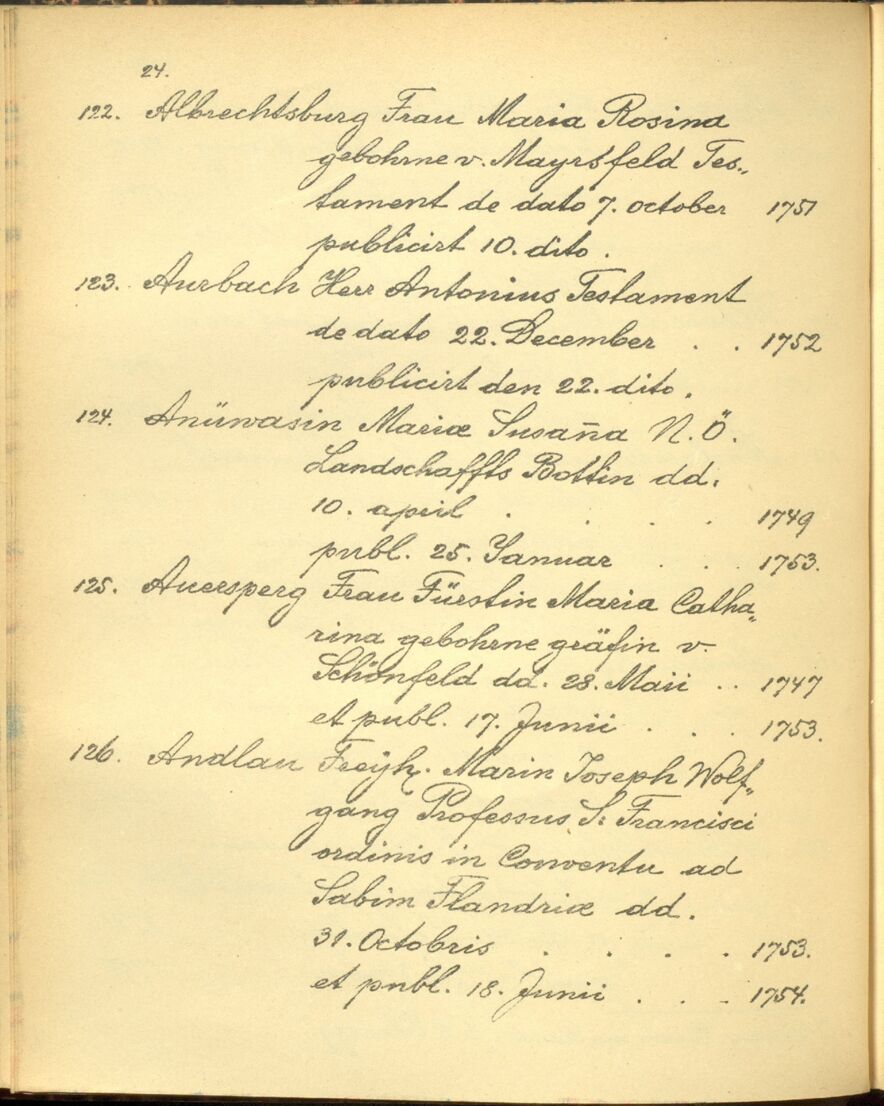 24.
122. Albrechtsburg Frau Maria Rosina
gebohrne v. Mayrsfeld Tes„
tament de dato 7. october 1751
publicirt 10. dito.
123. Aurbach Herr Antonius Testament
de dato 22. December . . 1752
publicirt den 22. dito.
124. Anüwasin Mariæ Susaña N. Ö.
Landschaffts Bottin dd.
10. april . . . . 1749
publ. 25. Januar . . . 1753.
125. Auersperg Frau Fürstin Maria Catha„
rina gebohrne gräfin v.
Schönfeld dd. 28. Maii . . 1747
et publ. 17. Junii . . . 1753.
126. Andlau Freÿh. Marin Joseph Wolf„
gang Professus S: Francisci
ordinis in Conventu ad
Sabim Flandriæ dd.
31. Octobris . . . . 1753.
et publ. 18. Junii . . . 1754.